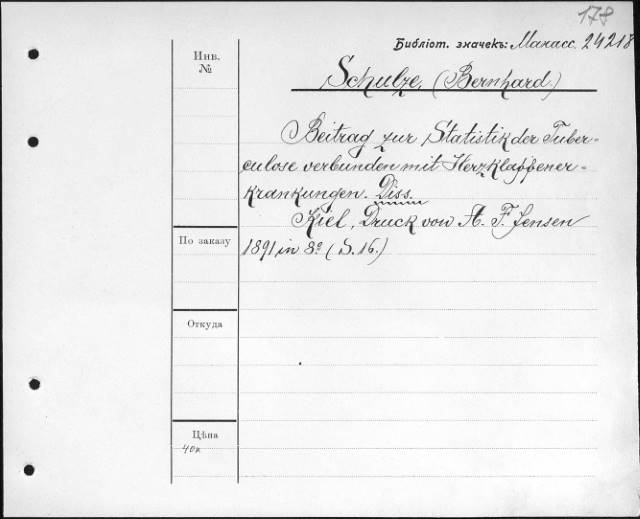 178
Библіот. значекъ: Манасс. 24218
Инв.
№
Schulze, (Bernhard.)
Beitrag zur Statistik der Tuber-
culose verbunden mit Herzklappener-
krankungen. Diss.
Kiel, Druck von A. F. Jensen
1891 in 8º (S. 16.)
По заказу
Откуда
Цѣна
40к